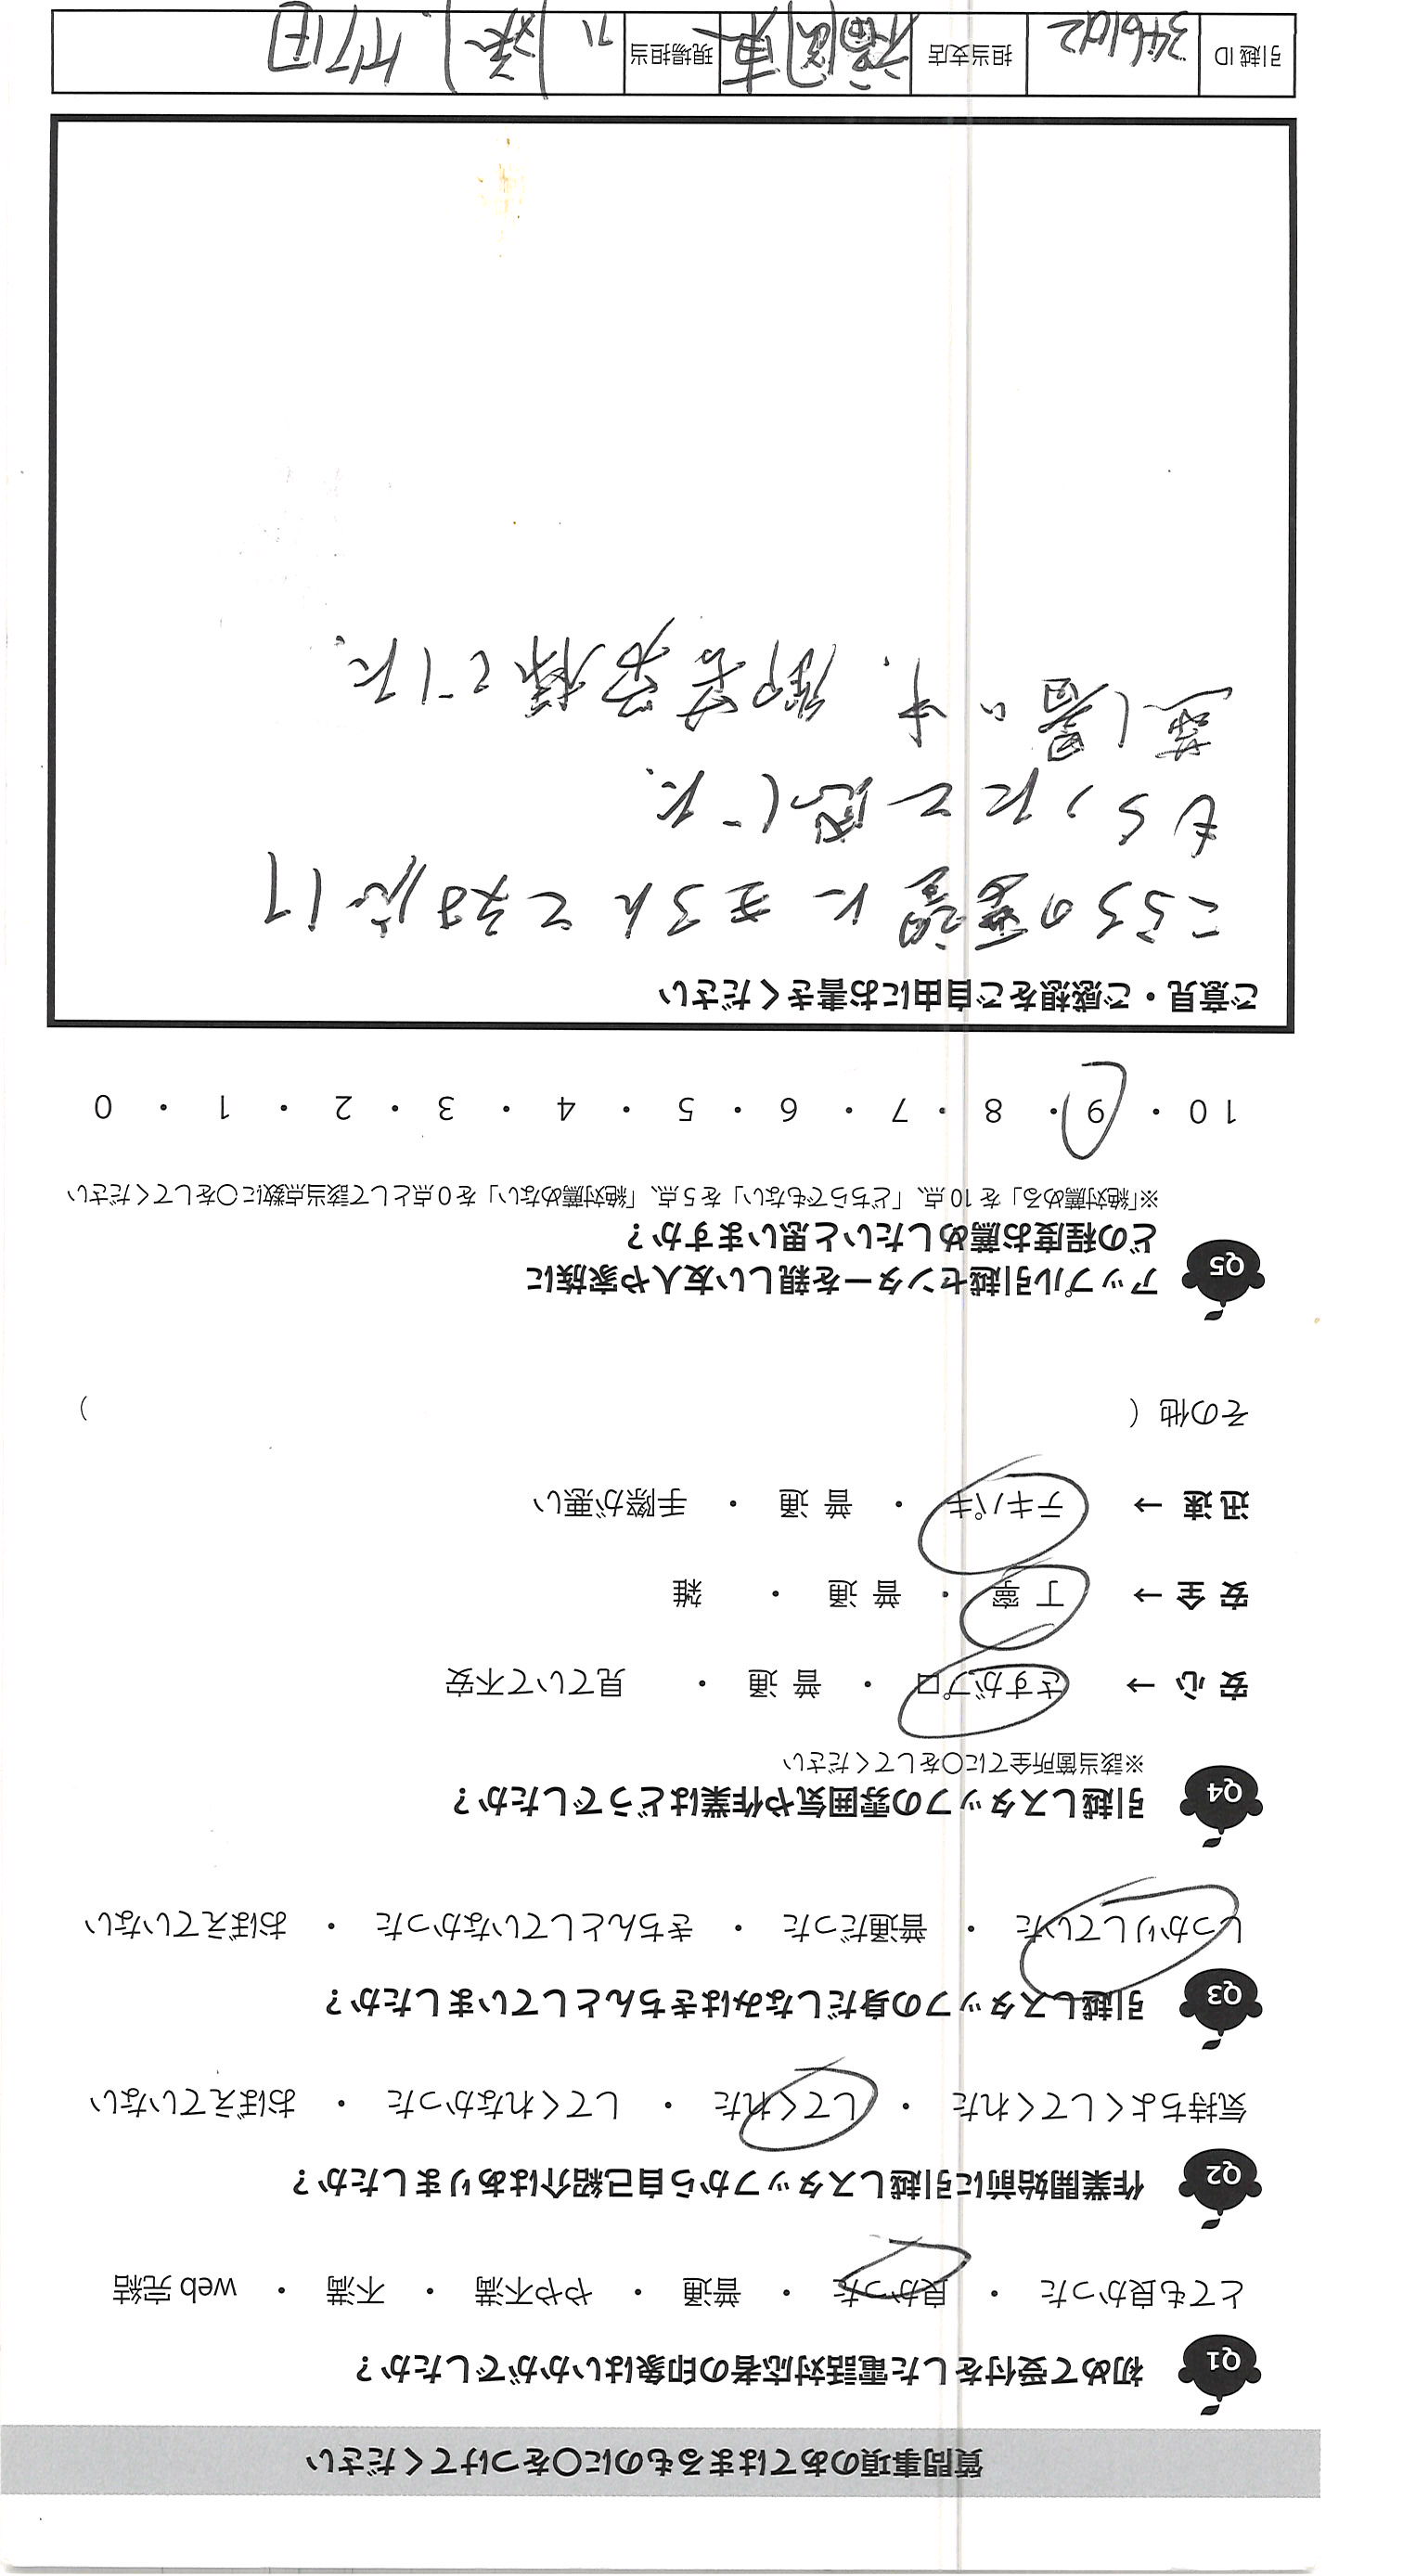 質問事項のあてはまるものに〇をつけてください
Q1 初めて受付をした電話対応者の印象はいかがでしたか？
とても良かった ・ 良かった ・ 普通 ・ やや不満 ・ 不満 ・ web 完結
Q2 作業開始前に引越しスタッフから自己紹介はありましたか？
気持ちよくしてくれた ・ してくれた ・ してくれなかった ・ おぼえていない
Q3 引越しスタッフの身だしなみはきちんとしていましたか？
しっかりしていた ・ 普通だった ・ きちんとしていなかった ・ おぼえていない
Q4 引越しスタッフの雰囲気や作業はどうでしたか？
※該当箇所全てに〇をしてください
安 心 → さすがプロ ・ 普 通 ・ 見ていて不安
安 全 → 丁 寧 ・ 普 通 ・ 雑
迅 速 → テキパキ ・ 普 通 ・ 手際が悪い
その他（ ）
Q5 アップル引越センターを親しい友人や家族に
どの程度お薦めしたいと思いますか？
※「絶対薦める」を 10 点、「どちらでもない」を 5 点、「絶対薦めない」を 0 点として該当点数に〇をしてください
10 ・ 9 ・ 8 ・ 7 ・ 6 ・ 5 ・ 4 ・ 3 ・ 2 ・ 1 ・ 0
ご意見・ご感想をご自由にお書きください
こちらの要望にきちんと対応して
もらったと感じた。
蒸し暑い中、御苦労様でした。
引越 ID 346102 担当支店 福岡東 現場担当